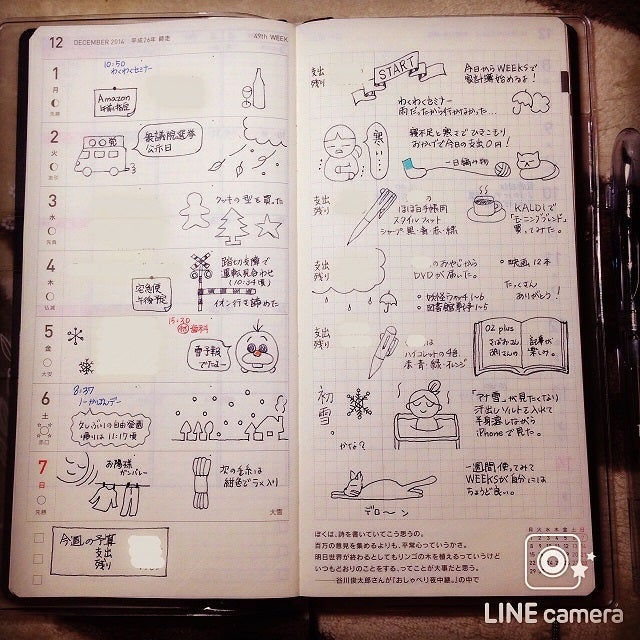 12 DECEMBER 2014 平成26年 師走
49th WEEK
1
月
先勝
10:50
わくわくセミナー
Amazon
午前指定
2
火
友引
衆議院選挙
公示日
3
水
先負
クッキーの型を買った
4
木
仏滅
宅急便
午後予定
踏切支障で
運転見合わせ
(10:34頃)
イオン行き諦めた
5
金
大安
15:30
歯科
雪予報
でたよー
6
土
赤口
8:37
ノーかばんデー
久しぶりの自由堂園
帰りは11:17頃
7
日
先勝
お陽様
ガンバレー
次の毛糸は
紺色でラメ入り
大雪
今週の予算
支出
残り
支出
残り
START
今日からWEEKSで
家計簿始めるよ!
わくわくセミナー
雨だったから行かなかった…
寒い
寝不足と寒さでひきこもり
おかげで今日の支出0円!
一日編み物
支出
残り
の
ほぼ日手帳用
スタイルフィット
シャープ・黒・青・赤・緑
KALDIで
「モーニングブレンド」
買ってみた。
支出
残り
のおやじから
DVDが届いた。
妖怪ウォッチ1~6
図書館戦争1~5
映画12本
たっくさん
ありがとう!
支出
残り
ハイコレットの4色
赤・青・緑・オレンジ
02 plus
記事が
楽しみ。
初
雪
。
かな?
「アナ雪」が見たくなり
汗出しソルトを入れて
半身浴しながら
iPhoneで見た。
デローン
一週間使ってみて
WEEKSが自分には
ちょうど良い。
ぼくは、詩を書いていてこう思うの。
百万の意見を集めるよりも、平常心っていうかさ。
明日世界が終わるとしてもリンゴの木を植えるっていうけど
いつもどおりのことをする、ってことが大事だと思う。
——谷川俊太郎さんが『おしゃべり夜中継。』の中で
月 火 水 木 金 土 日
LINE camera